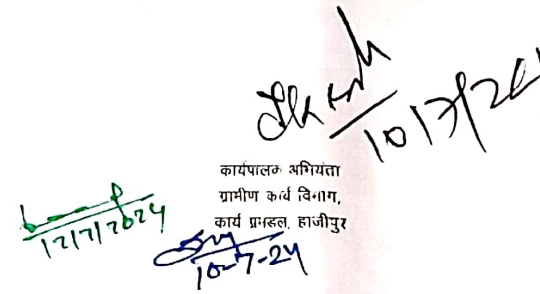 10/7/24
कार्यपालक अभियंता
ग्रामीण कार्य विभाग,
कार्य प्रमंडल, हाजीपुर
12/7/2024
10-7-24